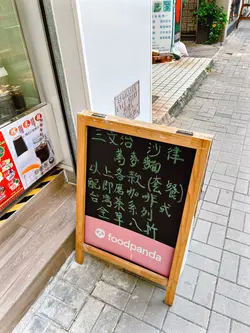 三文治 沙律
烏冬麵
以上各款(套餐)
配即磨咖啡或
台灣茶系列
全單八折
foodpanda